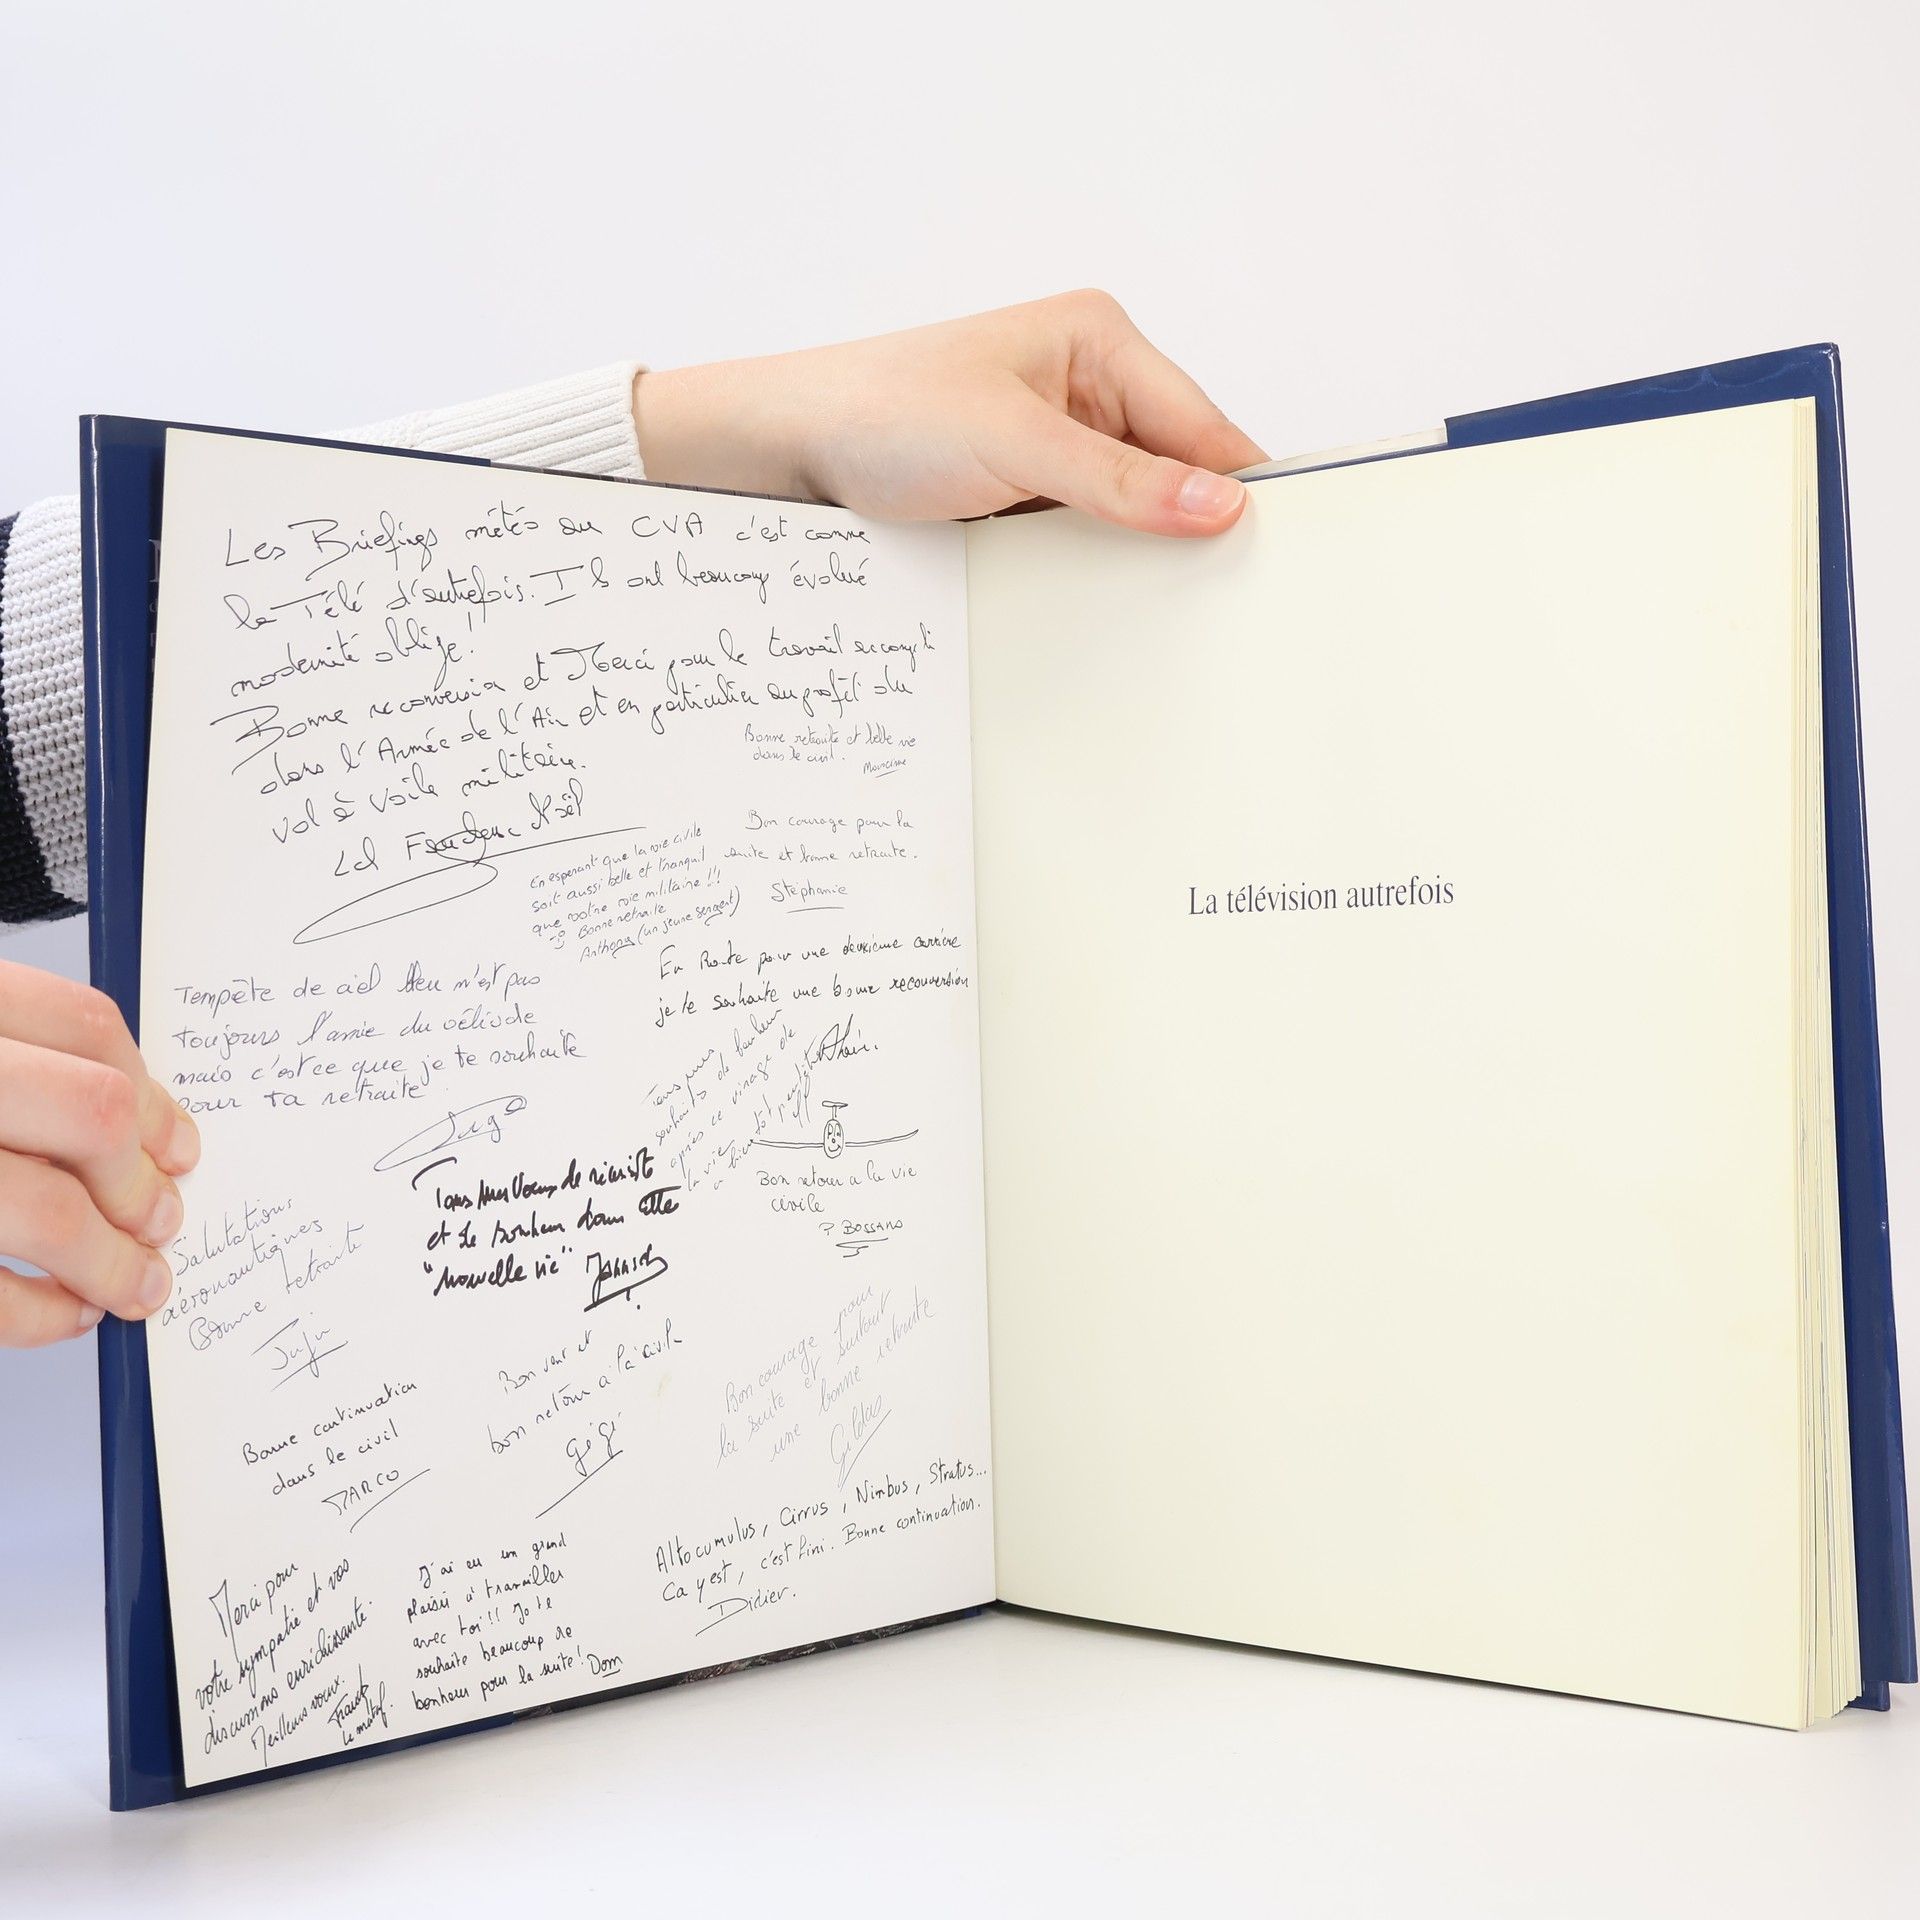 Les Briefings météo au CVA c'est comme
la Télé d'autrefois. Ils ont beaucoup évolué
modernité oblige!
Bonne reconversion et Merci pour le travail accompli
dans l'Armée de l'Air et en particulier au profit du
vol à voile militaire.
Lcl Noël
Bonne retraite et belle vie
dans le civil.
En esperant que la vie civile
soit aussi belle et tranquil
que votre vie militaire !!!
Bonne retraite
Anthony (un jeune sergent)
Bon courage pour la
suite et bonne retraite.
Stéphanie
En Route pour une deuxième carrière
je te souhaite une bonne reconversion
Tempête de ciel bleu n'est pas
toujours l'amie du vélivole
mais c'est ce que je te souhaite
pour ta retraite
Tous mes
souhaits de bonheur
après ce virage de
la vie
à bientôt peut être
Tous mes voeux de réussite
et de bonheur dans cette
"nouvelle vie"
Bon retour a la vie
civile
P BOSSANO
Salutations
aéronautiques
Bonne retraite
Juju
Bon vent et
bon retour à la civile
Gégé
Bon courage pour
la suite et surtout
une bonne retraite
Gildas
Bonne continuation
dans le civil
MARCO
Altocumulus, Cirrus, Nimbus, Stratus...
Ca y est, c'est fini. Bonne continuation.
Didier.
Merci pour
votre sympathie et vos
discussions enrichissante.
Meilleurs voeux.
Franck
J'ai eu un grand
plaisir à travailler
avec toi!! Je te
souhaite beaucoup de
bonheur pour la suite! Dom
La télévision autrefois